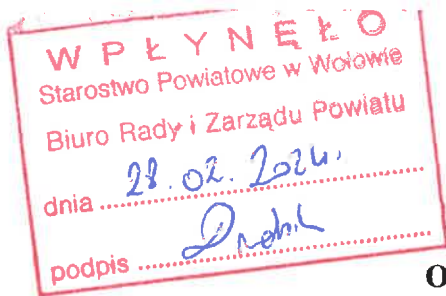 WPŁYNĘŁO
Starostwo Powiatowe w Wołowie
Biuro Rady i Zarządu Powiatu
dnia 28.02.2024.
podpis
O